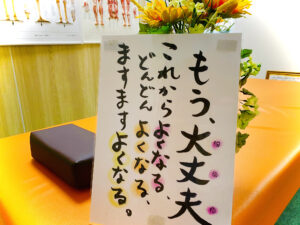 もう、大丈夫
これからよくなる、
どんどんよくなる、
ますますよくなる。